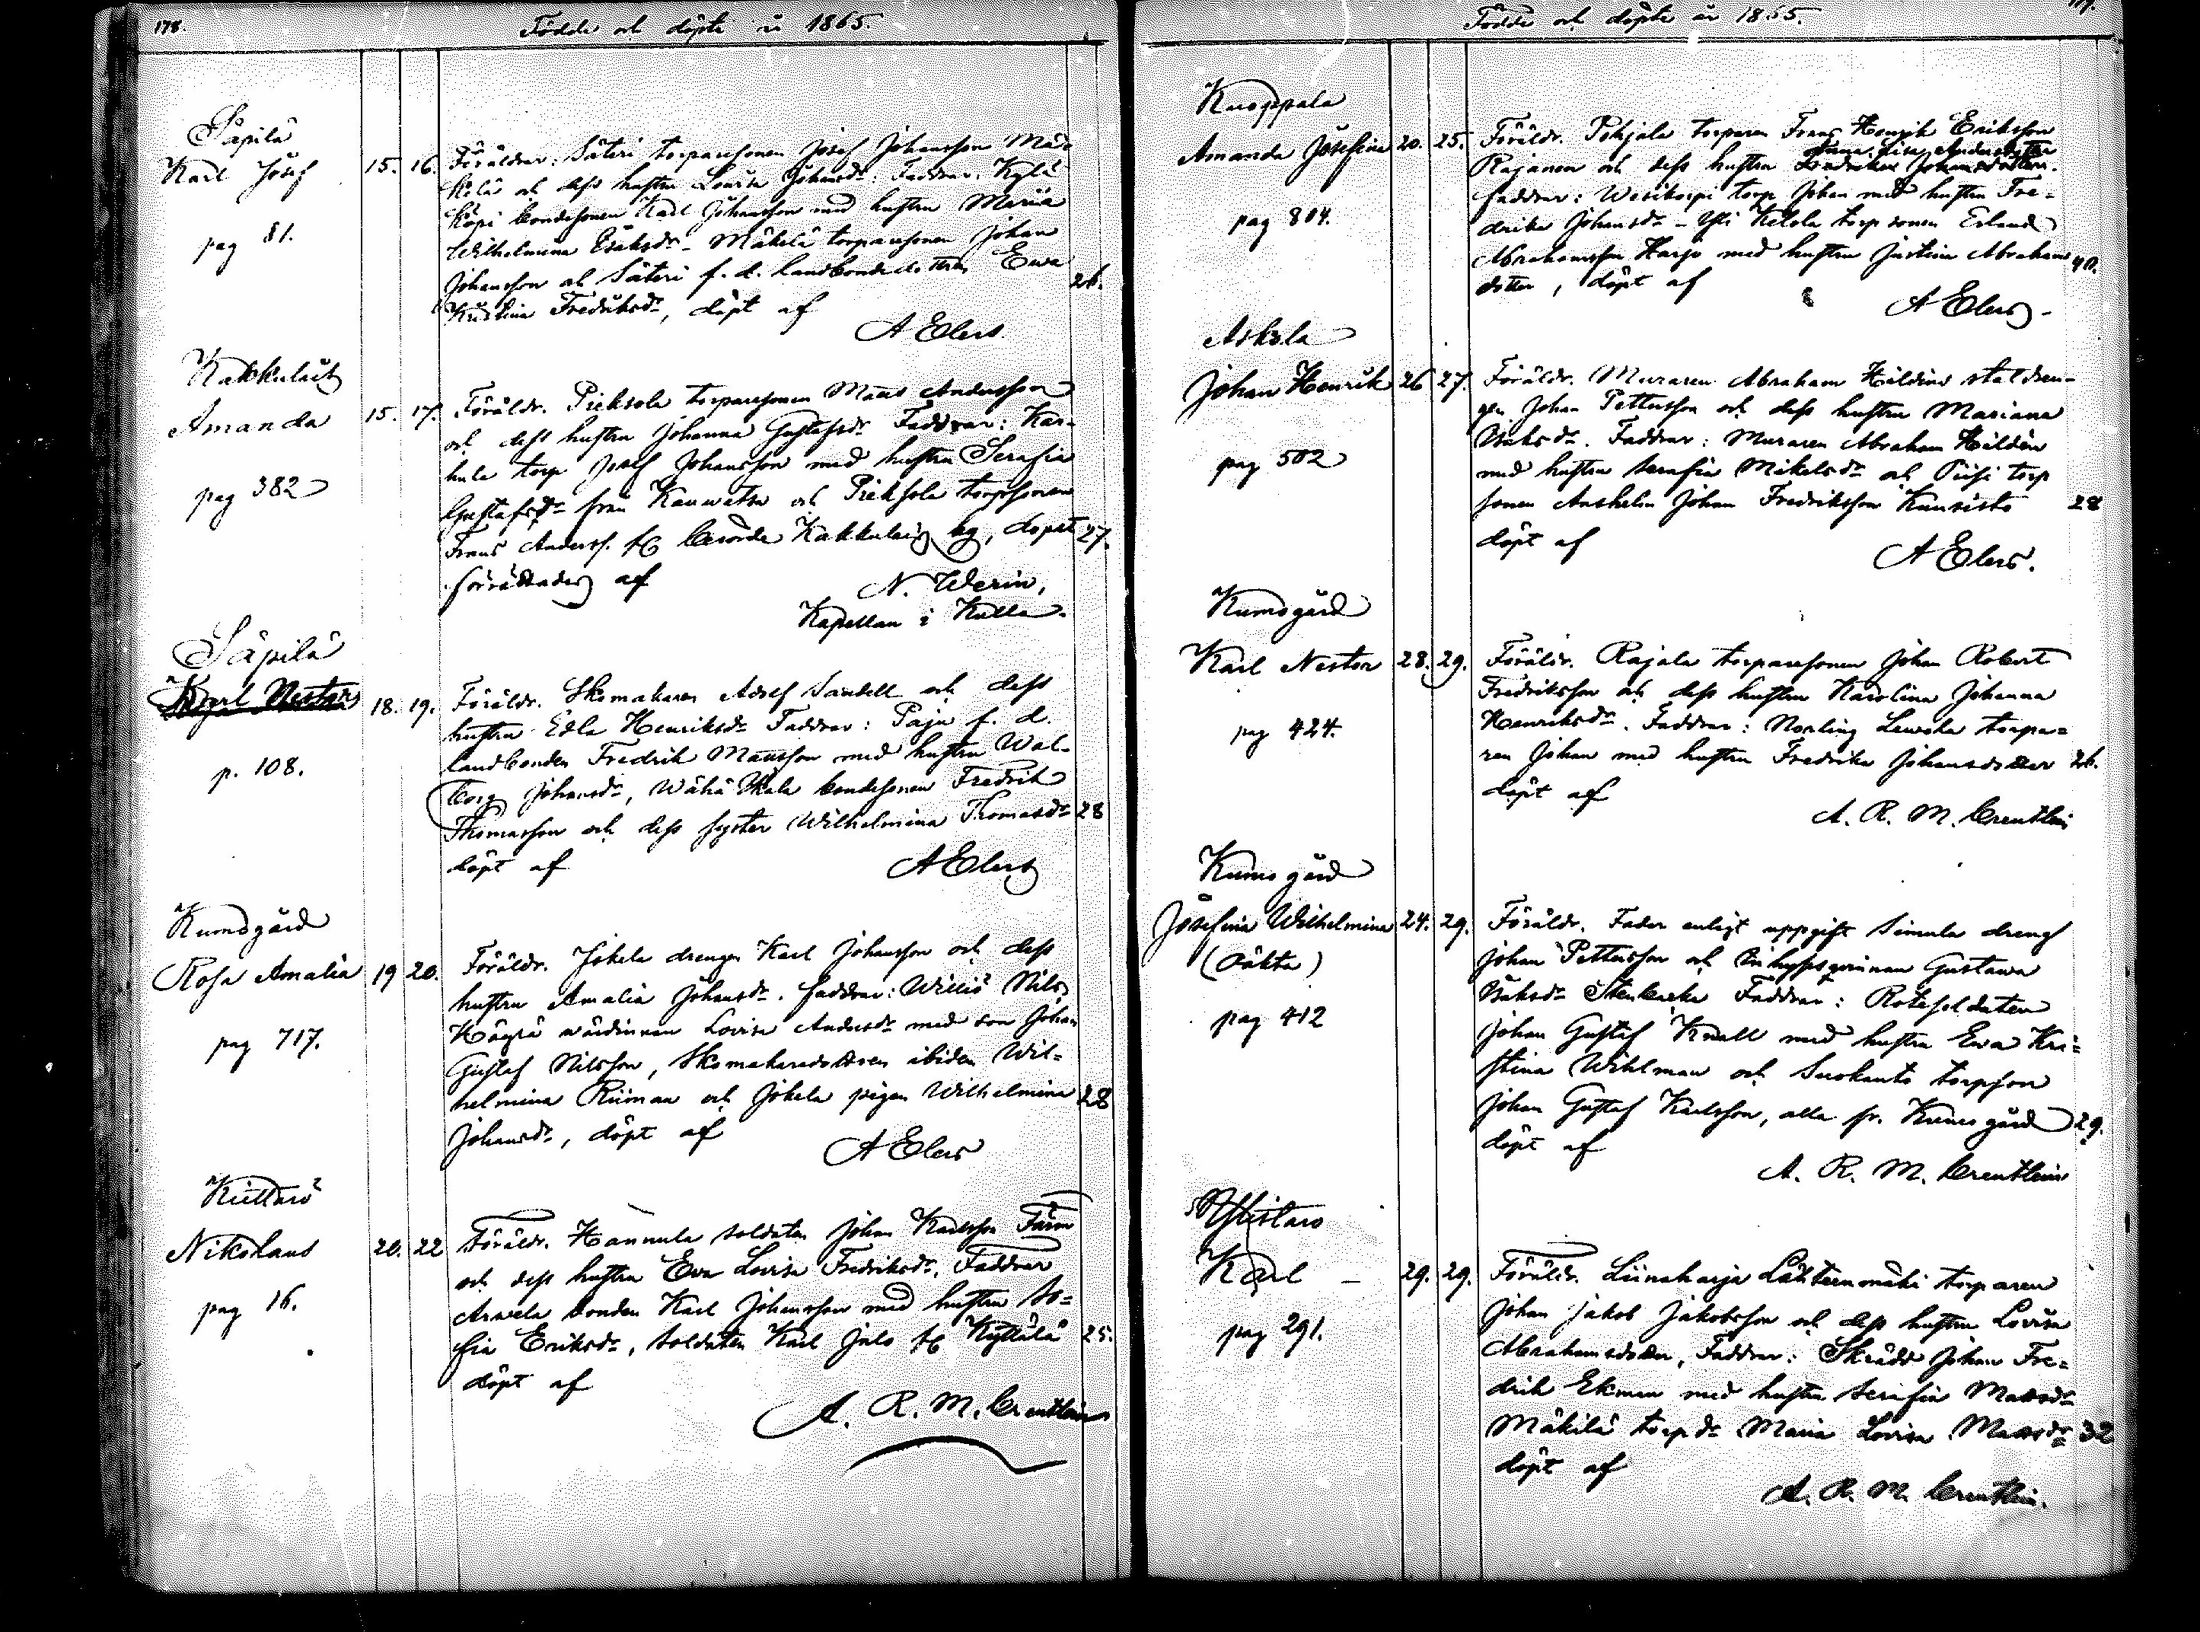 178.
Födde och döpte år 1865.
Säpilä
Karl Josef 15. 16. Föräldrar: Säteri torparesonen Josef Johansson Mä-
kelä och dess hustru Lovisa Johansdr. Faddrar: Kylä
bondesonen Karl Johansson med hustru Maria
pag 81.
Wilhelmina Isaksdr - Mäkelä torparesonen Johan
Johansson och Säteri f. d. landbonde dottern Ewa
26.
Kristina Fredriksdr, döpt af
A Elers.
Kakkulais
Amanda 15. 17. Föräldr. Pieksola torparesonen Måns Andersson
och dess hustru Johanna Gustafsdr. Faddrar: Kar-
hula torp Josef Johansson med hustru Serafia
pag 382
Gustafsdr från Kauwatsa och Pieksola torpsonen
Frans Anderss. fr berörde Kakkulais by, dopet 27.
förrättades af
N. Werin,
Kapellan i Kulla.
Säpilä
Karl Nestor 18. 19. Föräldr. Skomakaren Adolf Sandell och dess
hustru Edla Henriksdr Faddrar: Paju f. d.
landbonden Fredrik Månsson med hustru Wal-
p. 108.
borg Johansdr, Wähä bondesonen Fredrik
Thomasson och dess syster Wilhelmina Thomasdr 28
döpt af
A Elers
Kumogård
Rosa Amalia 19 20. Föräldr. Jokela drengen Karl Johansson och dess
hustru Amalia Johansdr. Faddrar: Willio Nils
wärdinnan Lovisa Andersdr med son Johan
pag 717.
Gustaf Nilsson, Skomakaredottren ibidem Wil-
helmina Riiman och Jokela pigan Wilhelmina 28
Johansdr, döpt af
A Elers
Kiettarö
Nikolaus 20. 22 Föräldr. Hannula soldaten Johan Karlsson Färm
och dess hustru Eva Lovisa Fredriksdr. Faddrar
Arwela bonden Karl Johansson med hustru So-
pag 16.
fia Eriksdr, soldaten Karl Julo fr Kyttälä 25.
döpt af
A. R. M. Crentlein
Födde och döpte år 1865.
179.
Knoppala
Amanda Josefina 20. 25. Föräldr. Pohjala torparen Frans Henrik Eriksson
Anna Lisa Andersdotter
Rajanen och dess hustru Fredrika Johansdotter.
Faddrar: Westkorpi torp Johan med hustru Fre-
pag 804.
drika Johansdr - Yli Ketola torp sonen Erland
Abrahamsson Harju med hustru Justina Abrahams 40.
dotter, döpt af
A Elers -
Askola
Johan Henrik 26 27. Föräldr. Muraren Abraham Hildéns staldren-
gen Johan Pettersson och dess hustru Mariana
Isaksdr. Faddrar: Muraren Abraham Hildén
pag 502
med hustru Serafia Mikelsdr och torp
sonen Anshelm Johan Fredriksson Kuusisto 28
döpt af
A Elers.
Kumogård
Karl Nestor 28. 29. Föräldr. Rajala torparesonen Johan Robert
Fredriksson och dess hustru Karolina Johanna
Henriksdr. Faddrar: Norling torpa-
pag 424.
ren Johan med hustru Fredrika Johansdotter 26.
döpt af
A. R. M. Crentlein
Kumo gård
Josefina Wilhelmina 24. 29. Föräldr. Fader enligt uppgift Simula dreng
(Oäkta)
Johan Pettersson och Inhysesqvinnan Gustawa
Isaksdr Stenbacka Faddrar: Rotesoldaten
pag 412
Johan Gustaf Knall med hustru Ewa Kri-
stina Wihlman och Suokanto torpson
Johan Gustaf Karlsson, alla fr. Kumo gård 29.
döpt af
A. R. M. Crentlein
Ylistaro
Karl - 29. 29. Föräldr. Liinaharja Lähteenmäki torparen
Johan Jakob Jakobsson och dess hustru Lovisa
pag 291.
Abrahamsdotter, Faddrar: Skrädd Johan Fre-
drik Ekman med hustru Serafia Matsdr
Mäkilä torp dr Maria Lovisa Matsdr 32
döpt af
A. R. M. Crentlein.